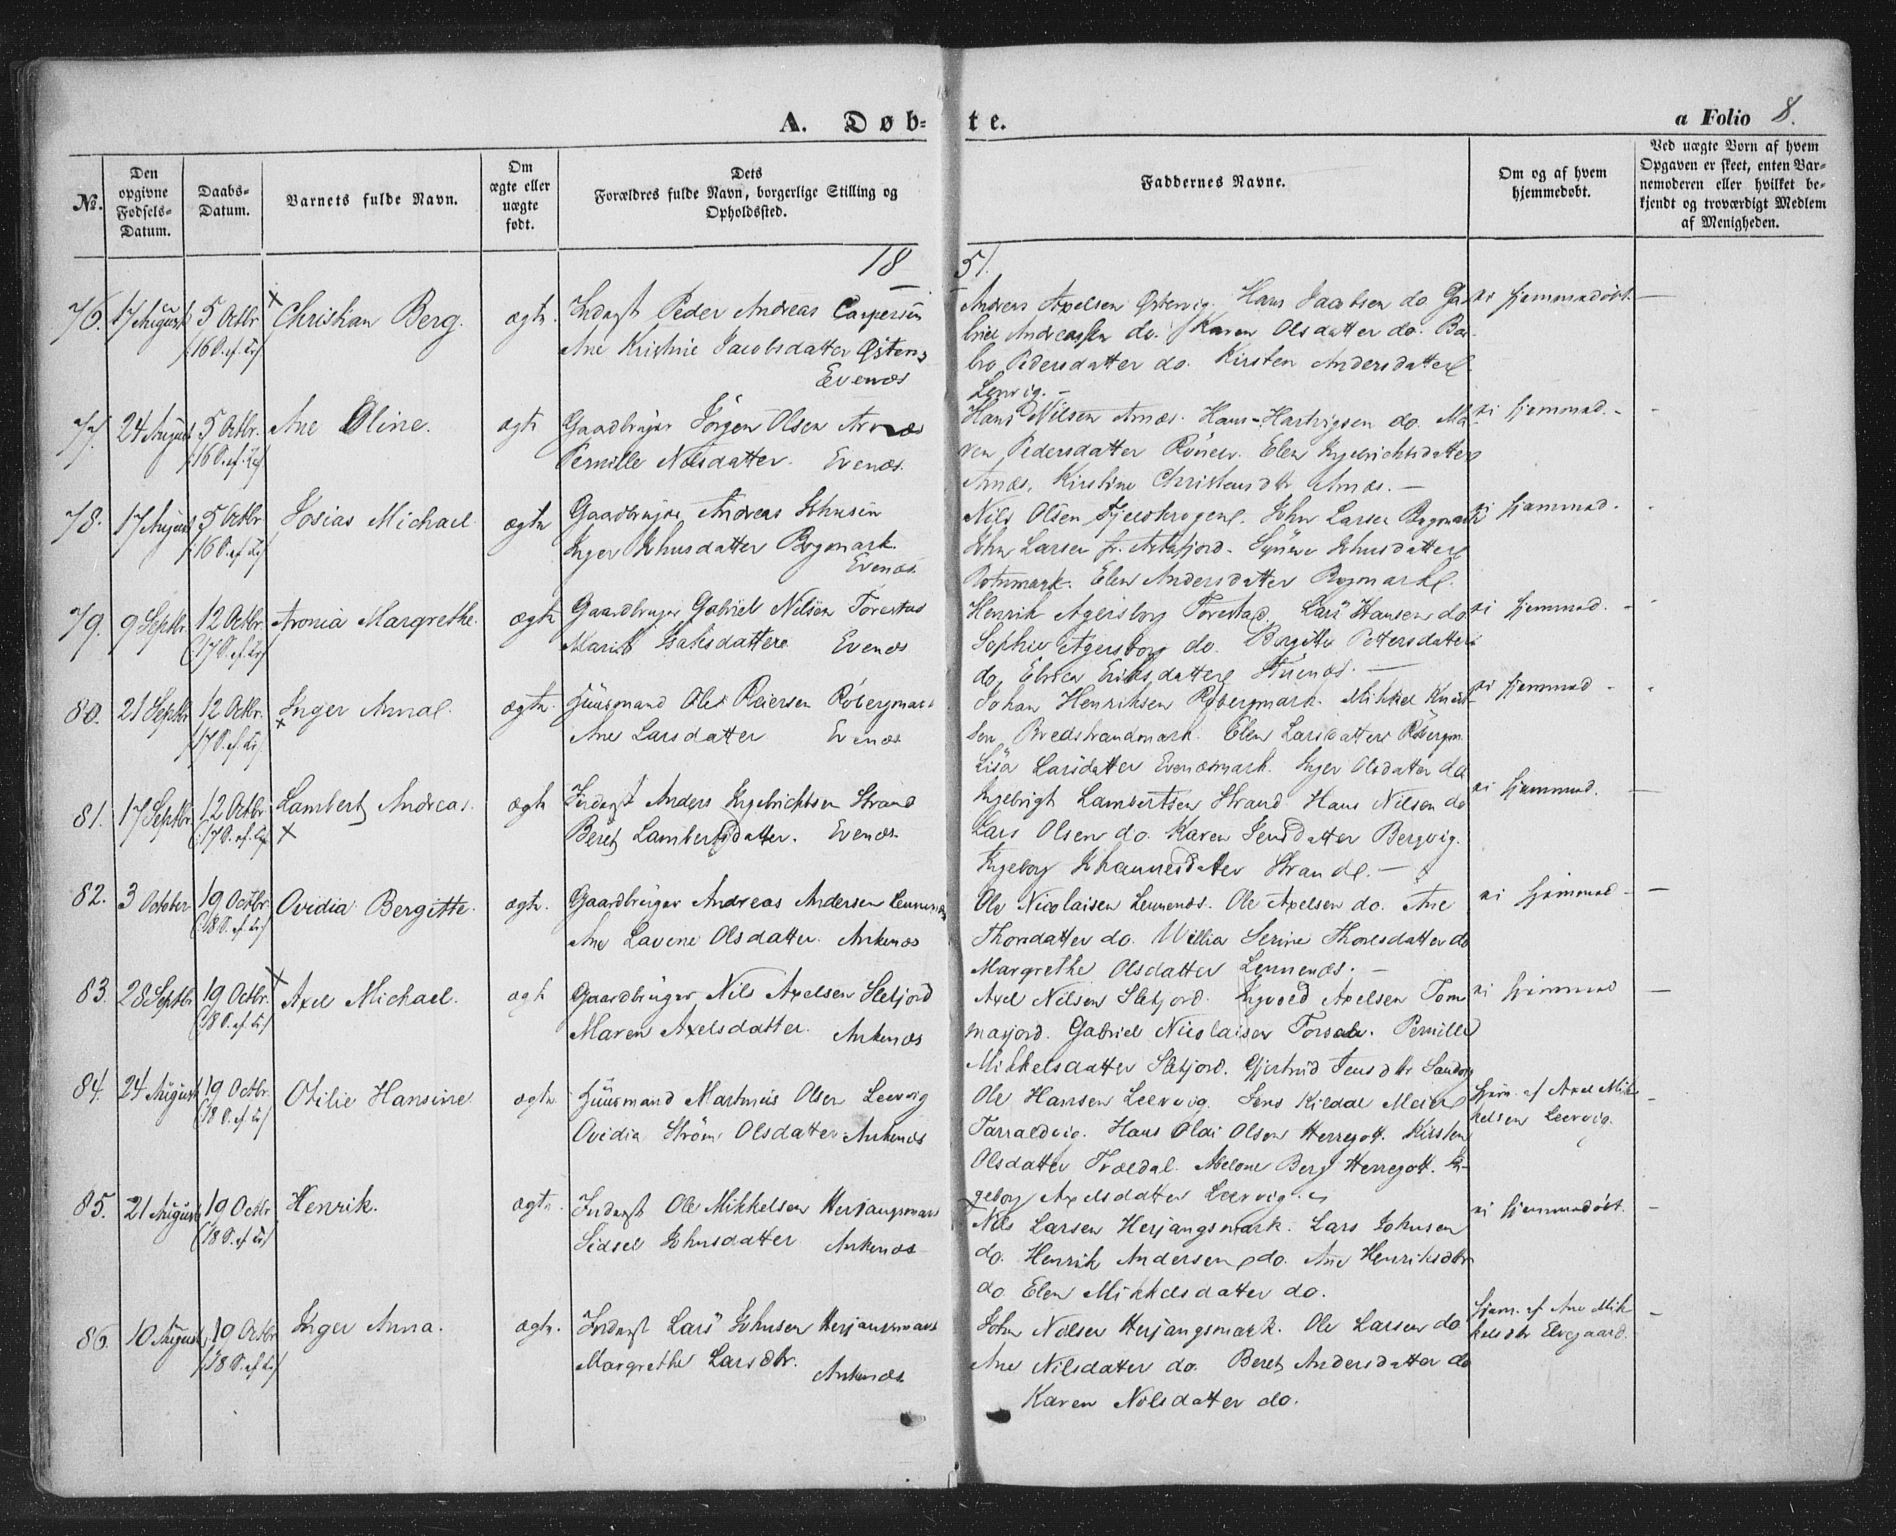 A. Døb-
te.
a Folio 8.
No.
Den opgivne Fødsels-Datum.
Daabs-Datum.
Barnets fulde Navn.
Om ægte eller uægte født.
Dets Forældres fulde Navn, borgerlige Stilling og Opholdssted.
Faddernes Navne.
Om og af hvem hjemmedøbt.
Ved uægte Børn af hvem Opgaven er skeet, enten Barnemoderen eller hvilket bekjendt og troværdigt Medlem af Menigheden.
18
51.
76. 17 August 5 Octbr. Christian Berg. ægte Inderst Peder Andreas Caspersen
Ane Kristine Jacobsdatter Østervig
Evenæs
Andreas Axelsen Østervig. Hans Jacobsen do. Ga-
briel Andreassen do. Karen Olsdatter do. Ba-
bro Pedersdatter do. Kirsten Andersdatter
Lenvig. -
ei hjemmedøbt. -
77. 24 August 5 Octbr. Ane Oline. ægte Gaardbruger Jörgen Olsen Arnæs
Pernille Nilsdatter. Evenæs.
Hans Nilsen Arnæs. Hans Hartvigsen do. Ma-
ren Pedersdatter Elen Ingebrichtsdatter
Arnæs. Kirstine Christensdtr Arnæs. -
ei hjemmed. -
78. 17 August 5 Octbr. Josias Michael. ægte Gaardbruger Andreas Johnsen
Inger Johnsdatter Bogmark.
Evenæs
Nils Olsen John Larsen Bogmark
John Larsen fr. Synere Johnsdatter
Botnmark. Elen Andersdatter Bogmark.
ei hjemmed. -
79. 9 Septbr. 12 Octbr. Aronia Margrethe. ægte Gaardbruger Gabriel Nilsen Forestad
Marit Isaksdatter Evenæs
Henrik Agersborg Forestad. Lars Hansen do
Sophie Agersborg do. Birgitte Pettersdatter
do. Eriksdatter -
ei hjemmed. -
80. 21 Septbr 12 Octbr. Inger Anna. ægte. Huusmand Ole Reiersen Røbergmark
Ane Larsdatter Evenæs
Johan Henriksen Røbergmark. Mikkel Knud-
sen Bredstrandmark. Elen Larsdatter Røbergm.
Lisa Larsdatter Evenæsmark. Inger Olsdatter do
ei hjemmed -
81. 17 Septbr. 12 Octbr Lambert Andreas. ægte Inderst Anders Ingebrichtsen Strand
Beret Lambertsdatter. Evenæs
Ingebrigt Lambertsen Strand Hans Nilsen do
Lars Olsen do. Karen Jensdatter Bergvig.
Ingeborg Johannesdatter Strand. -
ei hjemmed. -
82. 3 October 19 Octbr. Ovidia Bergitte. ægte. Gaardbruger Andreas Andersen Lennenæs
Ane Lavine Olsdatter. Ankenæs
Ole Nicolaisen Lennenæs. Ole Axelsen do. Ane
Thorsdatter do. Willia Serine Thorsdatter do
Margrethe Olsdatter Lennenæs. -
ei hjemmed -
83. 28 Septbr 19 Octbr. Axel Michael. ægte Gaardbruger Nils Axelsen Sletjord
Maren Axelsdatter. Ankenæs
Axel Nilsen Sletjord. Ingvold Axelsen Tom-
masjord. Gabriel Nicolaisen Pernille
Mikkelsdatter Sletjord. Gjertrud Jensdtr Sandvig
ei hjemmed -
84. 24 August 19 Octbr Otilie Hansine ægte Huusmand Martinus Olsen Leervig
Ovidia Ström Olsdatter Ankenæs
Ole Hansen Leervig. Jens Kildal Meier
Tarraldvig. Hans Olai Olsen Herregott. Kirsten
Olsdatter Trældal. Abelone Berg Herregott. In-
geborg Axelsdatter Leervig.
hjem. af Axel Mik-
kelsen Leervig. -
85. 21 August 19 Octbr Henrik. ægte. Inderst Ole Mikkelsen Herjangsmark
Sidsel Johnsdatter Ankenæs
Nils Larsen Herjangsmark. Lars Johnsen
do. Henrik Andersen do. Ane Henriksdtr
do Elen Mikkelsdatter do.
ei hjemmedøbt. -
86. 10 August 19 Octbr Inger Anna. ægte. Inderst Lars Johnsen Herjangsmark
Margrethe Larsdtr. Ankenæs
John Nilsen Herjangsmark. Ole Larsen do
Ane Nilsdatter do. Beret Andersdatter do
Karen Nilsdatter do.
hjem. af Ane Mik-
kelsdtr Elvegaard. -